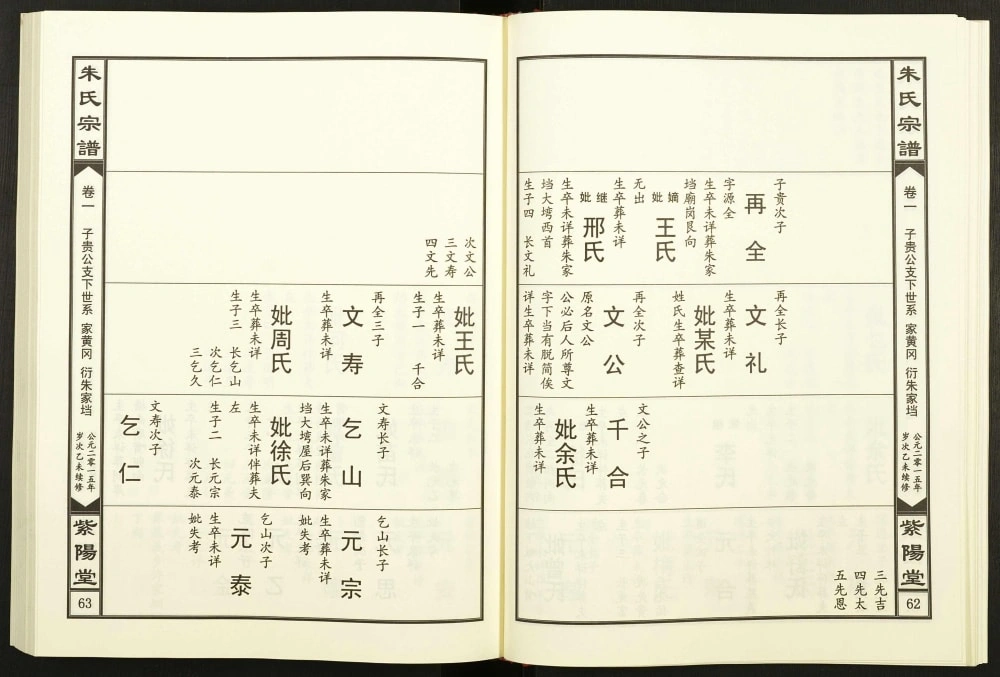 朱氏宗譜
卷一
子贵公支下世系
家黄冈
衍朱家垱
公元二零一五年
岁次乙未续修
紫陽堂
62
子贵次子
再全
字源全
生卒未详葬朱家
垱廟岗艮向
嫡妣
王氏
生卒葬未详
无出
继妣
邢氏
生卒未详葬朱家
垱大塆西首
生子四 长文礼
再全长子
文礼
生卒葬未详
妣某氏
姓氏生卒葬查详
再全次子
文公
原名文公
公必后人所尊文
字下当有脱简俟
详生卒葬未详
文公之子
千合
生卒葬未详
妣余氏
生卒葬未详
三先吉
四先太
五先恩
次文公
三文寿
四文先
妣王氏
生卒葬未详
生子一 千合
再全三子
文寿
生卒葬未详
妣周氏
生卒葬未详
生子三 长乞山
次乞仁
三乞久
文寿长子
乞山
生卒未详葬朱家
垱大塆屋后巽向
妣徐氏
生卒未详伴葬夫
左
生子二 长元宗
次元泰
文寿次子
乞仁
乞山长子
元宗
生卒葬未详
妣失考
乞山次子
元泰
生卒未详
妣失考
朱氏宗譜
卷一
子贵公支下世系
家黄冈
衍朱家垱
公元二零一五年
岁次乙未续修
紫陽堂
63